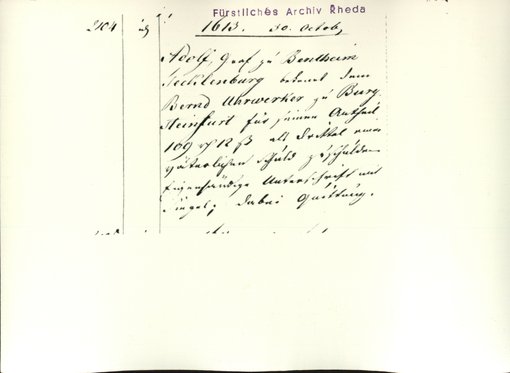 Fürstliches Archiv Rheda
204
1613. 30. Octob.
Adolf, Graf zu Bentheim
Tecklenburg bekennt dem
Bernd Uhrwerker zu Burg
Steinfurt für seinen Antheil
109 12 ß als Drittel einer
väterlichen Schuld zu schulden
Eigenhändige Unterschrift und
Siegel; dabei Quittung.